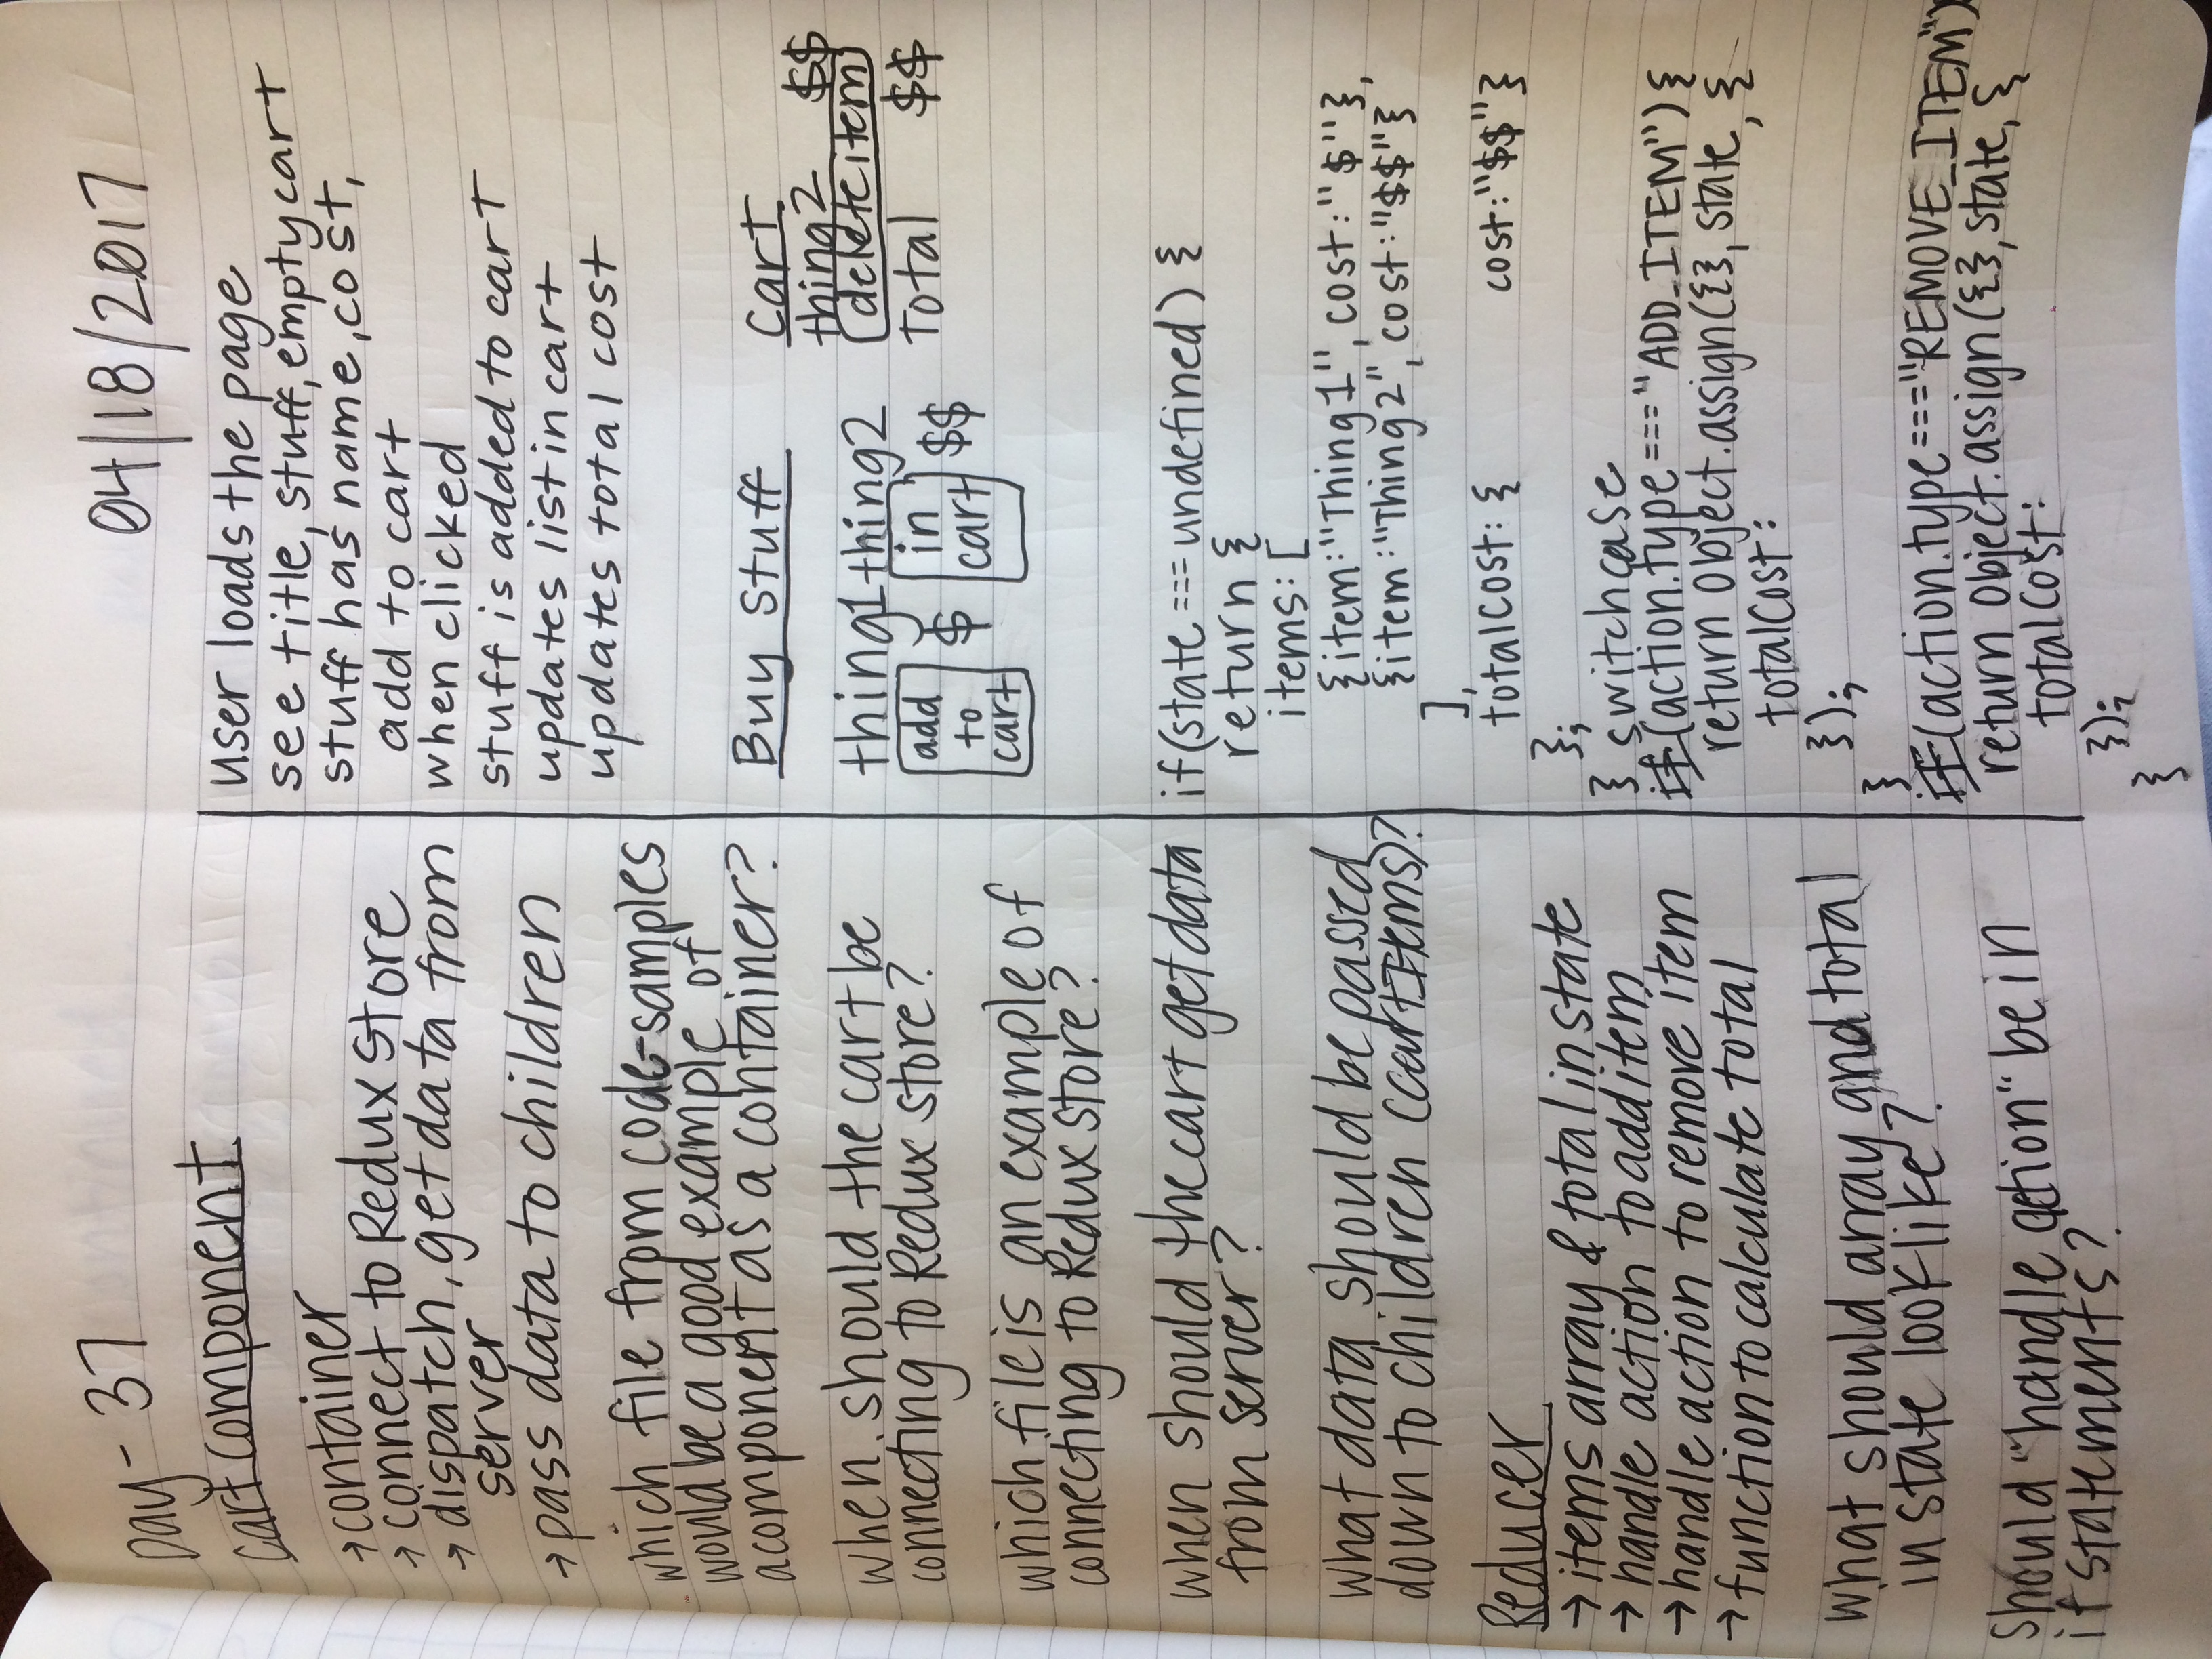 Day - 37
04/18/2017
cart component
→ container
→ connect to Redux Store
→ dispatch, get data from
server
→ pass data to children
which file from code-samples
would be a good example of
a component as a container?
when should the cart be
connecting to Redux store?
which file is an example of
connecting to Redux store?
when should the cart get data
from server?
what data should be passed
down to children (cartItems)?
Reducer
→ items array & total in state
→ handle action to add item
→ handle action to remove item
→ function to calculate total
what should array and total
in state look like?
should "handle action" be in
if statements?
user loads the page
see title, stuff, empty cart
stuff has name, cost,
add to cart
when clicked
stuff is added to cart
updates list in cart
updates total cost
Buy Stuff
thing1 thing2
add
to
cart
$
in
cart
$$
Cart
thing2 $$
delete item
Total $$
if(state === undefined) {
return {
items: [
{item:"Thing1", cost:"$"},
{item:"Thing2", cost:"$$"}
],
totalCost: { cost:"$$"}
};
} switch case
if(action.type === "ADD_ITEM") {
return Object.assign({}, state, {
totalCost:
});
}
if(action.type === "REMOVE_ITEM")
return Object.assign({}, state, {
totalCost:
});
}